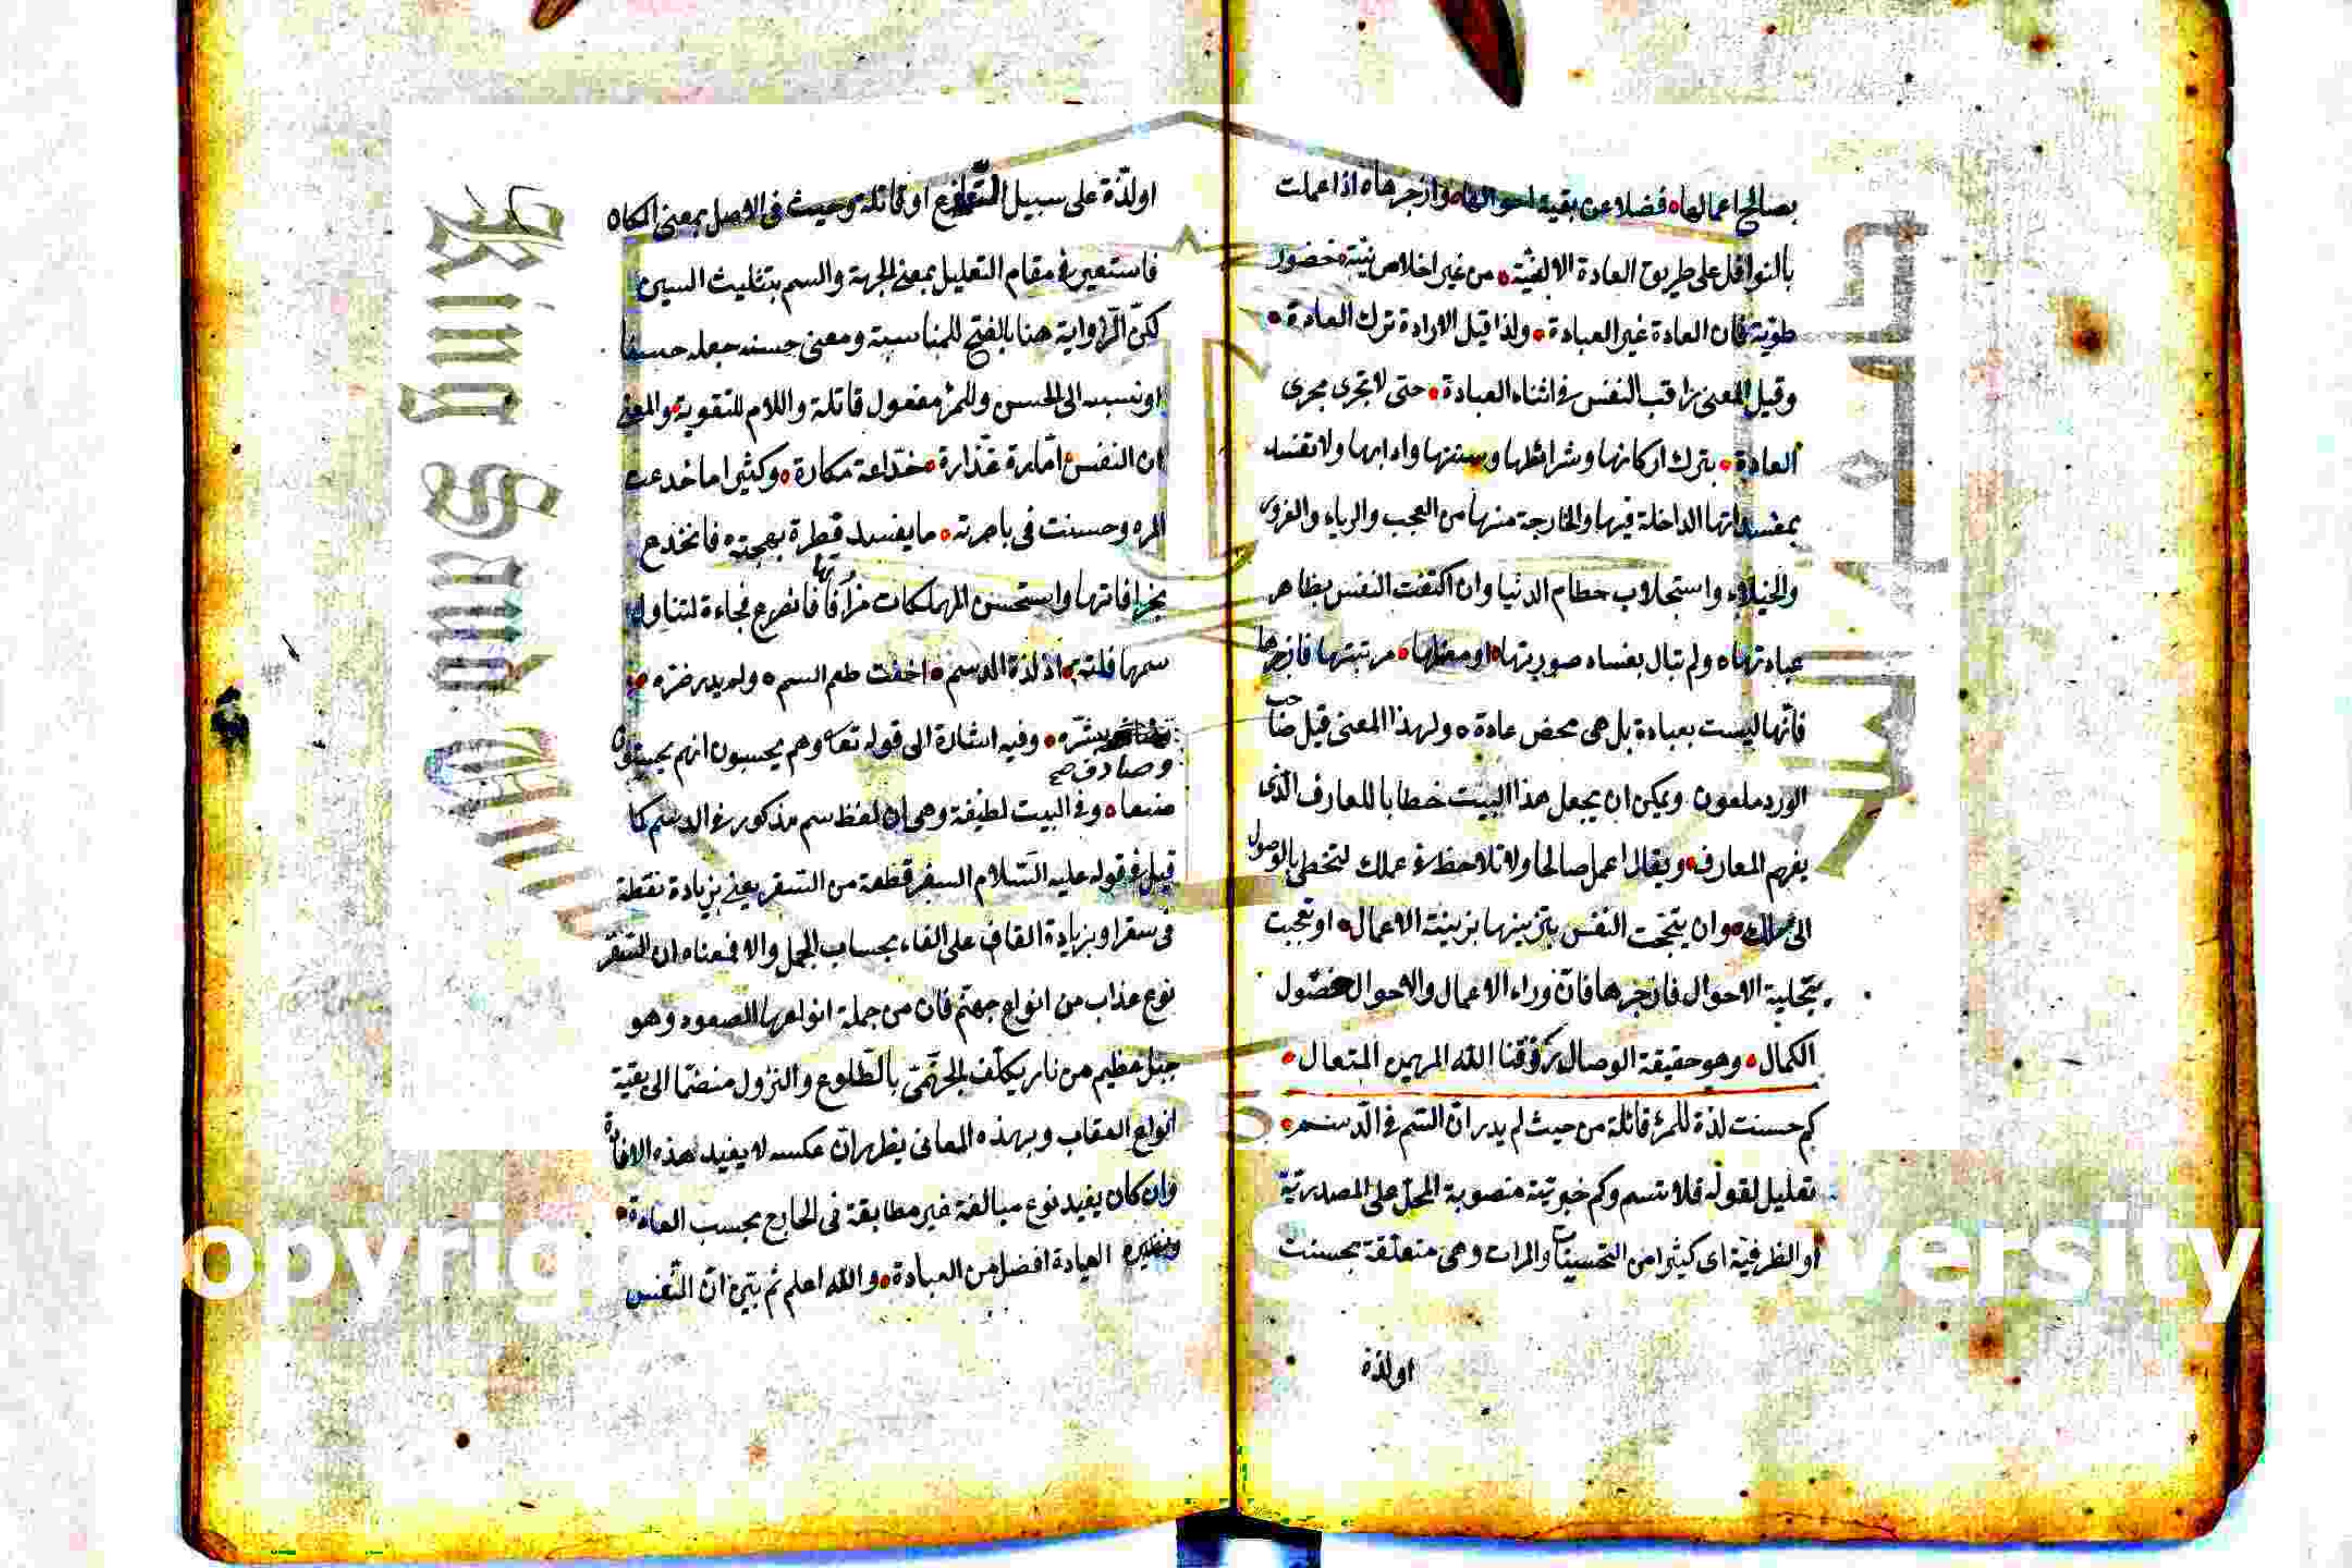 بصالح اعمالها فضلا عن بقية احوالها وازجرها اذا عملت
بالنوافل على طريق العادة الالفية من غير اخلاص نية حضور
طوية فان العادة غير العبادة ولذا قيل الارادة ترك العادة
وقيل المعنى راقب النفس في اثناء العبادة حتى لا تجرى مجرى
العادة بترك اركانها وشرائطها وسننها وادابها ولا تفسد
بمفسداتها الداخلة فيها والخارجة منها من العجب والرياء والغرور
والخيلاء واستجلاب حطام الدنيا وان اكتفت النفس بظاهر
عبادتها ولم تبال بفساد صورتها او مرتبتها فازجرها
فانها ليست بعبادة بل هى محض عادة ولهذا المعنى قيل صاحب
الورد ملعون ويمكن ان يجعل هذا البيت خطابا للعارف الذى
يفهم المعارف ويقال اعمل صالحا ولا تلاحظ في عملك لتحظى بالوصول
الى وان النفس بتزيينها بزينة الاعمال او
بتحلية الاحوال فازجرها فان وراء الاعمال والاحوال حصول
الكمال وهو حقيقة الوصال رزقنا الله المهيمن المتعال
كم حسنت لذة للمرء قاتلة من حيث لم يدر ان السم في الدسم
تعليل لقوله فلا تسم وكم خبرية منصوبة المحل على المصدرية
او الظرفية اى كثيرا من التحسينات والمرات وهى متعلقة بحسنت
اولذة
اولذة على سبيل التنازع او قاتلة وحيث فى الاصل بمعنى المكان
فاستعير في مقام التعليل بمعنى الجهة والسم بتثليث السين
لكن الرواية هنا بالفتح للمناسبة ومعنى حسنه جعله حسنا
او نسبه الى الحسن وللمرء مفعول قاتلة واللام للتقوية والمعنى
ان النفس امارة غدارة خداعة مكارة وكثيرا ما خدعت
المرء وحسنت فى باصرته ما يفسد قطرة بهجته فانخدع
بخرافاتها واستحسن المهلكات من آفاتها فانصرع فجاءة لتناول
سمها فلتة اذ لذة الدسم اخفت طعم السم ولم يدر ضره من
وصادف صح
بشره وفيه اشارة الى قوله تعا وهم يحسبون انهم يحسنون
صنعا وفي البيت لطيفة وهى ان لفظ سم مذكور في الدسم كما
قيل في قوله عليه السلام السفر قطعة من السقر يعنى بزيادة نقطة
فى سقر او بزيادة القاف على الفاء بحساب الجمل والا فمعناه ان السفر
نوع عذاب من انواع جهنم فان من جملة انواعها الصعود وهو
جبل عظيم من نار يكلف الجهنمى بالطلوع والنزول منضما الى بقية
انواع العقاب وبهذه المعانى يظهر ان عكسه لا يفيد هذه الافادة
وان كان يفيد نوع مبالغة غير مطابقة فى الخارج بحسب العادة
ونظيره العيادة افضل من العبادة والله اعلم ثم بين ان النفس
King Saud
opyrig
versity